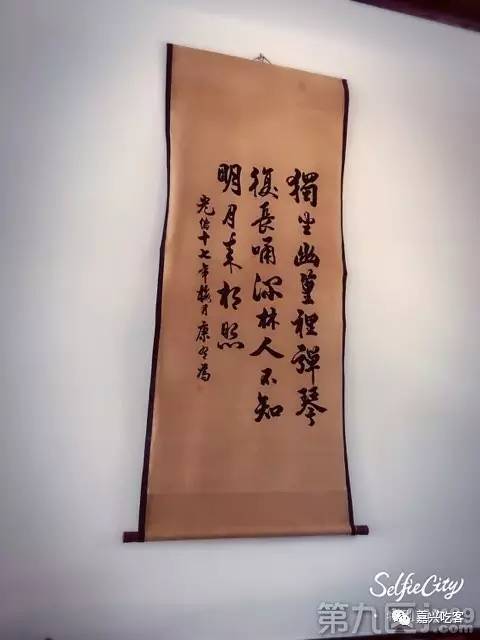 獨坐幽篁裡彈琴
復長嘯深林人不知
明月來相照
光緒十七年梅月康有為
SelfieCity
嘉兴吃客
第九区